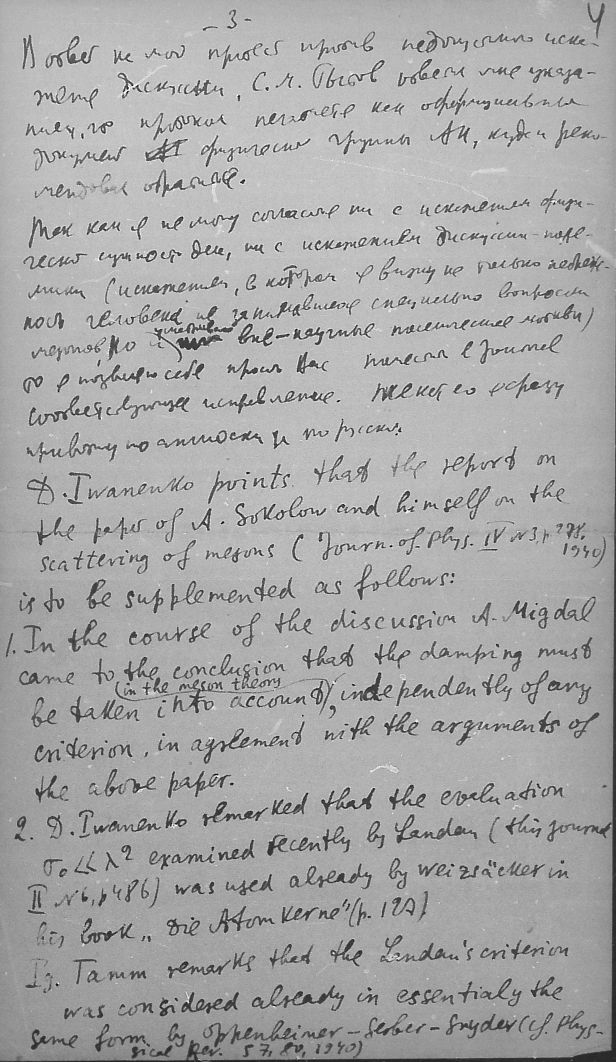 - 3 -
4
В ответ на мой протест против недопустимого иска-
жения дискуссии, С.И.
что протокол как официальный
документ физической группы АН, куда и реко-
мендовал обратиться.
Так как я не могу согласиться ни с искажением физи-
ческой сущности дела, ни с искажением дискуссии-поле-
мики (искажении, в котором я вижу не только
ность человека не занимавшегося специально вопросом
мезонов, но и вне-научные мотивы)
то я позволю себе просить Вас поместить в Journal
соответствующее исправление. Текст его я сразу
привожу по английски и по русски.
D. Iwanenko points that the report on
the paper of A. Sokolow and himself on the
scattering of mesons (Journ. of Phys. IV N3, p 278,
1940)
is to be supplemented as follows:
1. In the course of the discussion A. Migdal
came to the conclusion that the damping must
(in the meson theory)
be taken into account, independently of any
criterion, in agreement with the arguments of
the above paper.
2. D. Iwanenko remarked that the evaluation
σ₀ << λ² examined recently by Landau (this journal
II N 6, p 486) was used already by Weizsäcker in
his book „Die Atomkerne" (p. 127)
Ig. Tamm remarks that the Landau's criterion
was considered already in essentialy the
same form by Oppenheimer-Serber-Snyder (cf. Phys-
sical Rev. 57, 80, 1940)